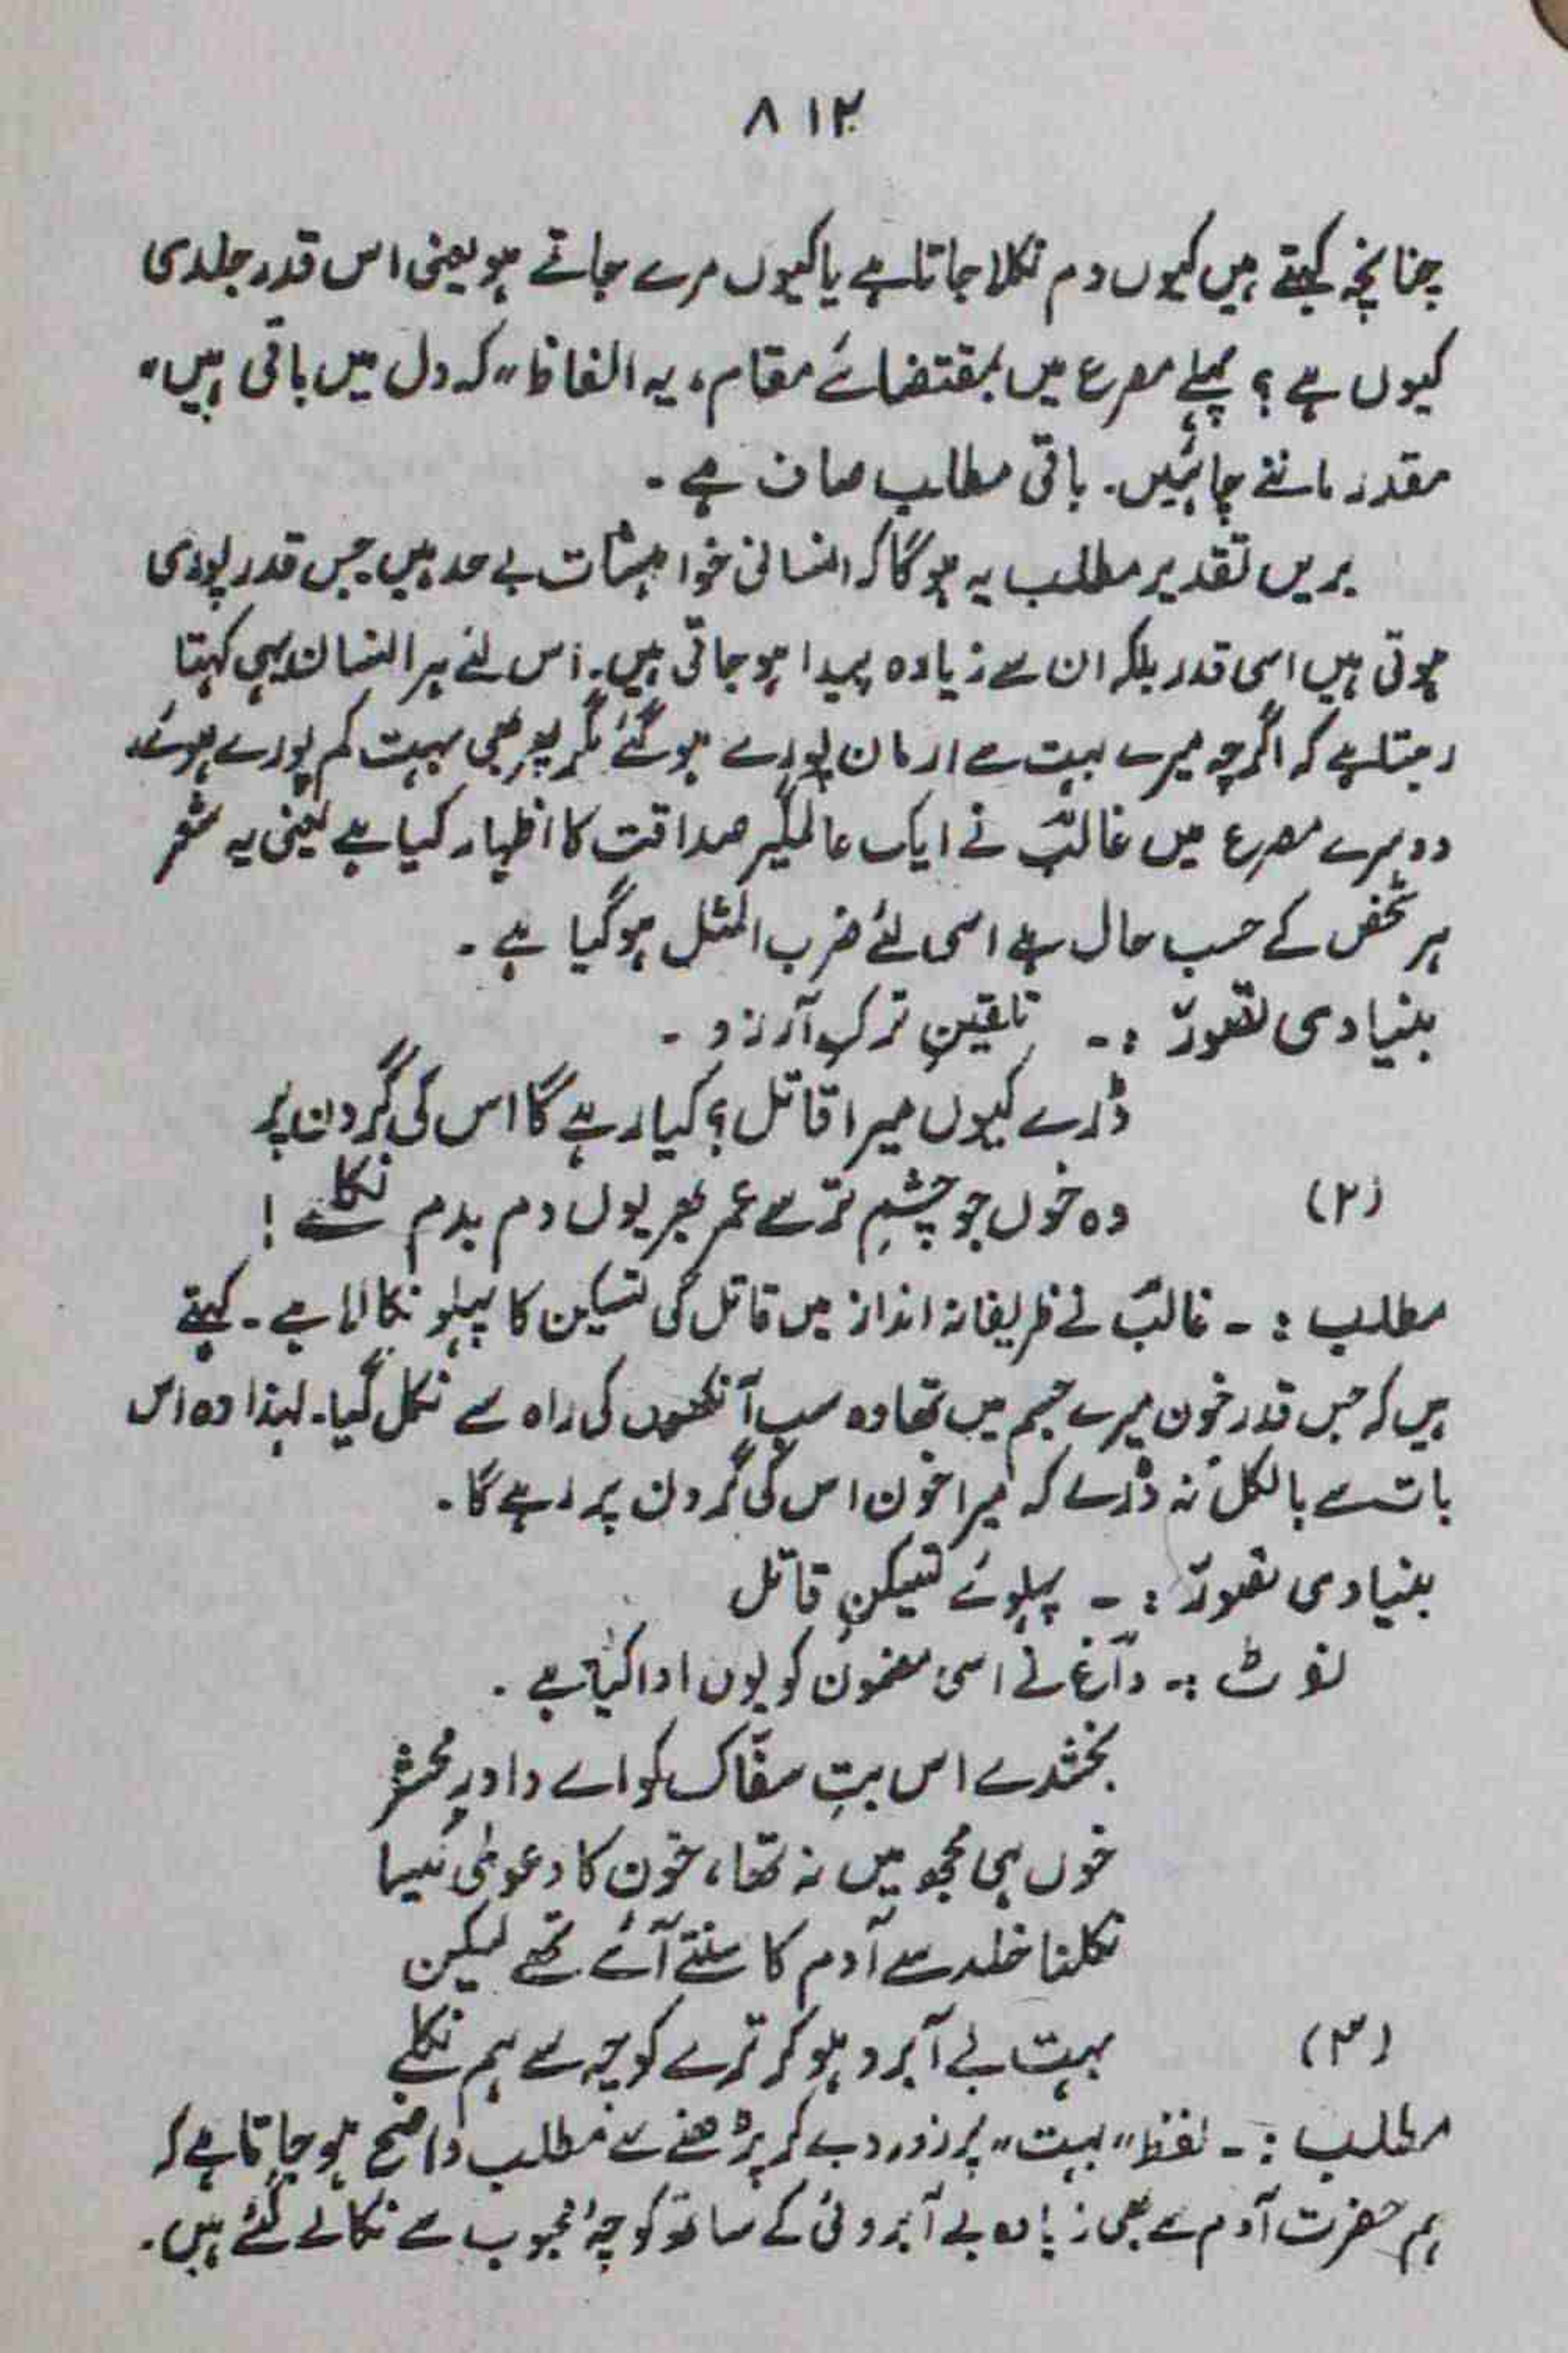 ۸۱۲
چنانچہ کہتے ہیں کیوں دم نکلا جاتا ہے یا کیوں مرے جاتے ہو یعنی اس قدر جلدی
کیوں ہے؟ پہلے مصرع میں بمقتضائے مقام، یہ الفاظ "کہ دل میں باقی ہیں"
مقدر ماننے چاہئیں۔ باقی مطلب صاف ہے۔
بریں تقدیر مطلب یہ ہوگا کہ انسانی خواہشات بے حد ہیں جس قدر پوری
ہوتی ہیں اسی قدر بلکہ ان سے زیادہ پیدا ہو جاتی ہیں۔ اس لئے ہر انسان یہی کہتا
رہتا ہے کہ اگرچہ میرے بہت سے ارمان پورے ہوگئے مگر پھر بھی بہت کم پورے ہوئے۔
دوسرے مصرع میں غالبؔ نے ایک عالمگیر صداقت کا اظہار کیا ہے یعنی یہ شعر
ہر شخص کے حسب حال ہے اسی لئے ضرب المثل ہوگیا ہے۔
بنیادی تصوّر :۔ تلقینِ ترکِ آرزو۔
ڈرے کیوں میرا قاتل؟ کیا رہے گا اس کی گردن پر
(۲) وہ خوں جو چشمِ تر سے عمر بھر یوں دم بدم نکلے!
مطلب :۔ غالبؔ نے ظریفانہ انداز میں قاتل کی تسکین کا پہلو نکالا ہے۔ کہتے
ہیں کہ جس قدر خون میرے جسم میں تھا وہ سب آنکھوں کی راہ سے نکل گیا۔ لہذا وہ اس
بات سے بالکل نہ ڈرے کہ میرا خون اس کی گردن پر رہے گا۔
بنیادی تصوّر :۔ پہلوئے تسکینِ قاتل
نوٹ :۔ داغؔ نے اسی مضمون کو یوں ادا کیا ہے۔
بخشدے اس بتِ سفّاک کو اے داورِ محشر
خوں ہی مجھ میں نہ تھا، خون کا دعویٰ کیسا
نکلنا خلد سے آدم کا سنتے آئے تھے لیکن
(۳) بہت بے آبرو ہو کر ترے کوچہ سے ہم نکلے
مطلب :۔ لفظ "بہت" پر زور دے کر پڑھنے سے مطلب واضح ہو جاتا ہے کہ
ہم حضرت آدم سے بھی زیادہ بے آبروئی کے ساتھ کوچۂ محبوب سے نکالے گئے ہیں۔